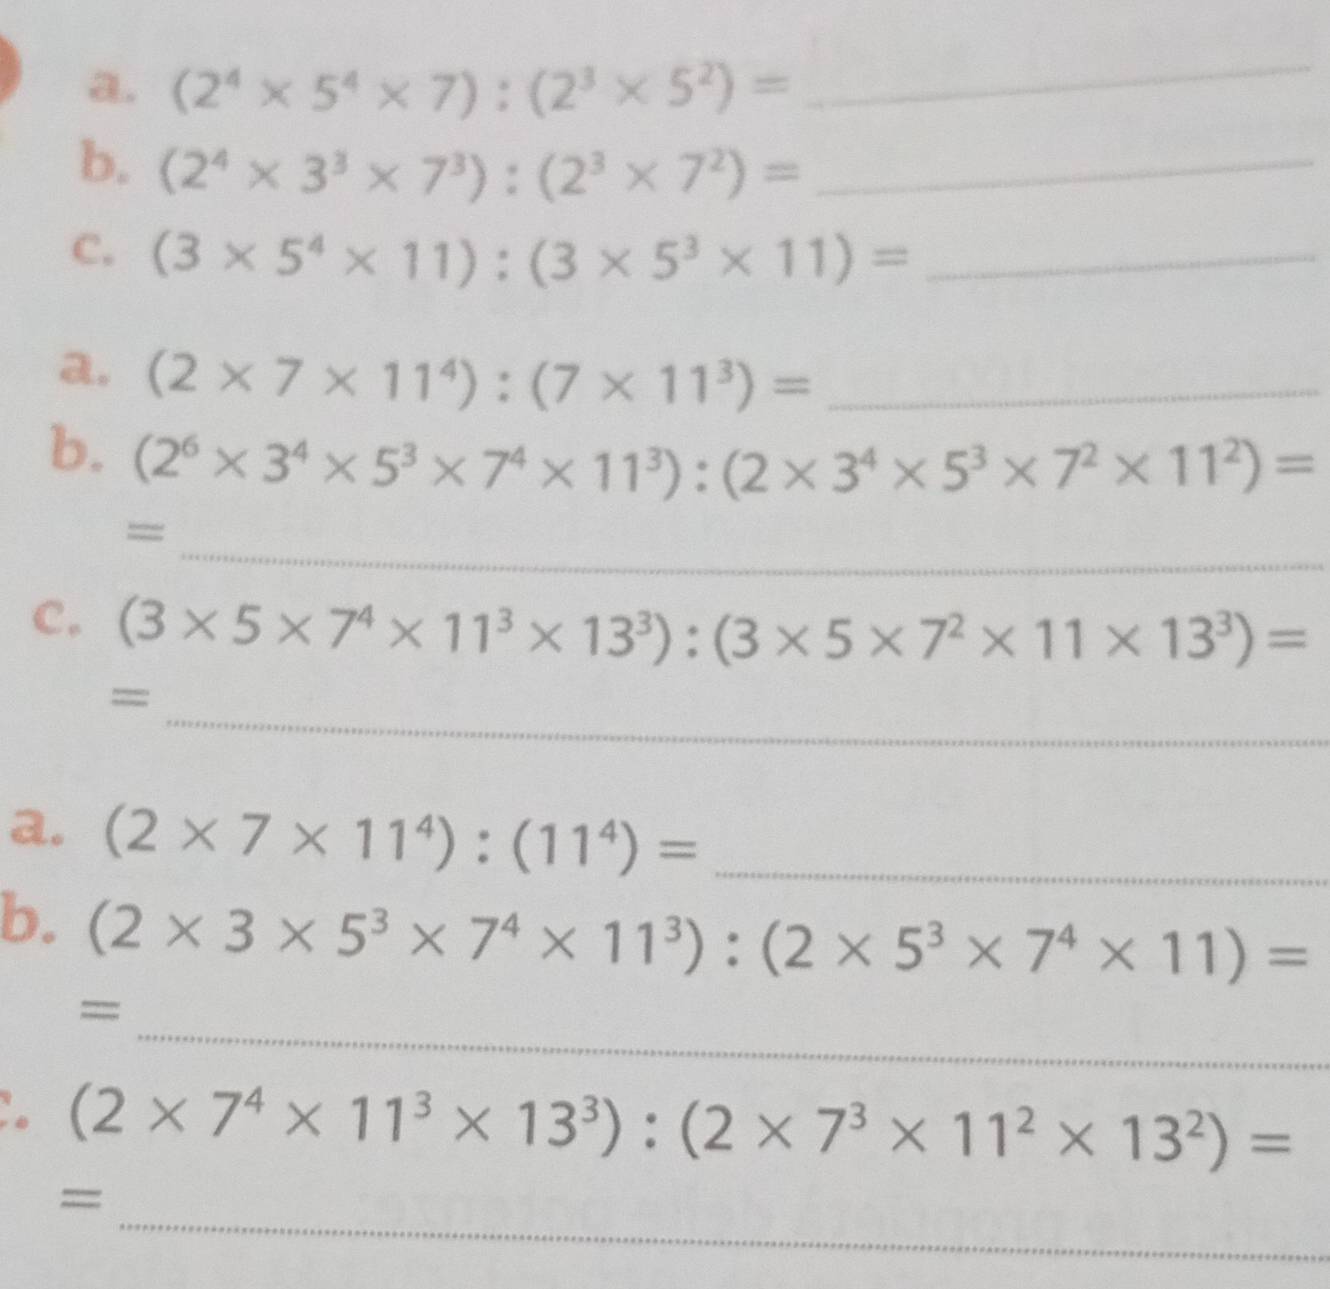 a. (2⁴ × 5⁴ × 7) : (2³ × 5²) =
b. (2⁴ × 3³ × 7³) : (2³ × 7²) =
c. (3 × 5⁴ × 11) : (3 × 5³ × 11) =
a. (2 × 7 × 11⁴) : (7 × 11³) =
b. (2⁶ × 3⁴ × 5³ × 7⁴ × 11³) : (2 × 3⁴ × 5³ × 7² × 11²) =
=
c. (3 × 5 × 7⁴ × 11³ × 13³) : (3 × 5 × 7² × 11 × 13³) =
=
a. (2 × 7 × 11⁴) : (11⁴) =
b. (2 × 3 × 5³ × 7⁴ × 11³) : (2 × 5³ × 7⁴ × 11) =
=
c. (2 × 7⁴ × 11³ × 13³) : (2 × 7³ × 11² × 13²) =
=